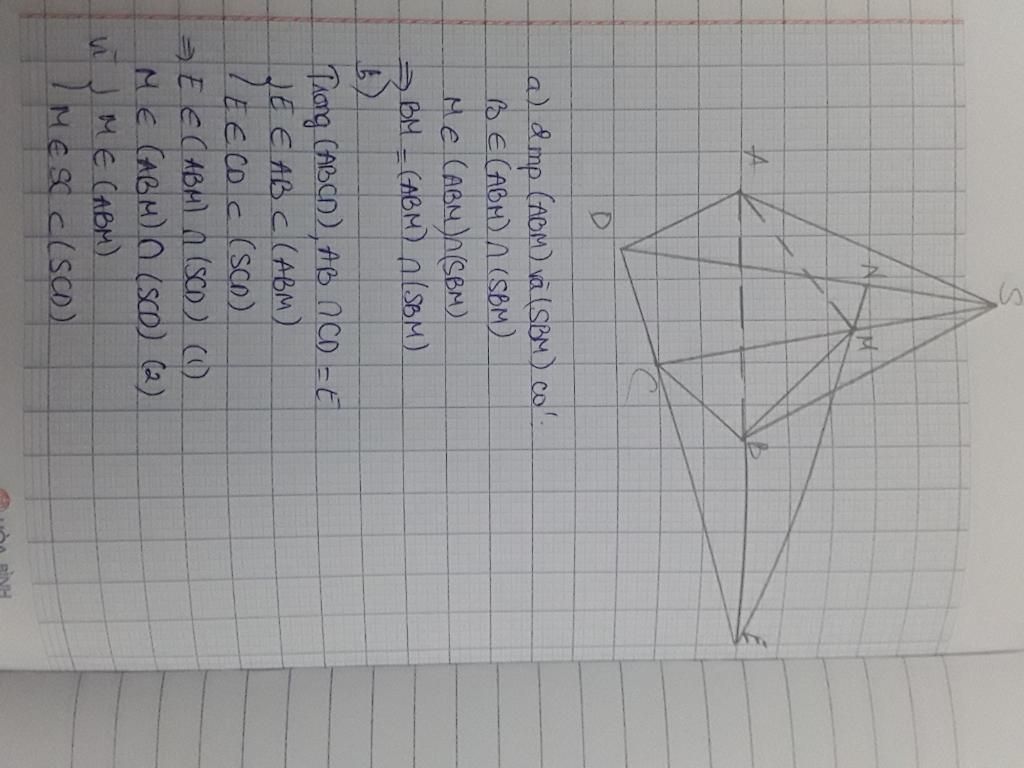 S
A
N
M
D
C
B
E
a) 2mp (ABM) và (SBM) có:
B ∈ (ABM) ∩ (SBM)
M ∈ (ABM) ∩ (SBM)
⇒ BM = (ABM) ∩ (SBM)
b)
Trong (ABCD), AB ∩ CD = E
{ E ∈ AB ⊂ (ABM)
{ E ∈ CD ⊂ (SCD)
⇒ E ∈ (ABM) ∩ (SCD) (1)
M ∈ (ABM) ∩ (SCD) (2)
vì { M ∈ (ABM)
{ M ∈ SC ⊂ (SCD)
HÒA BÌNH